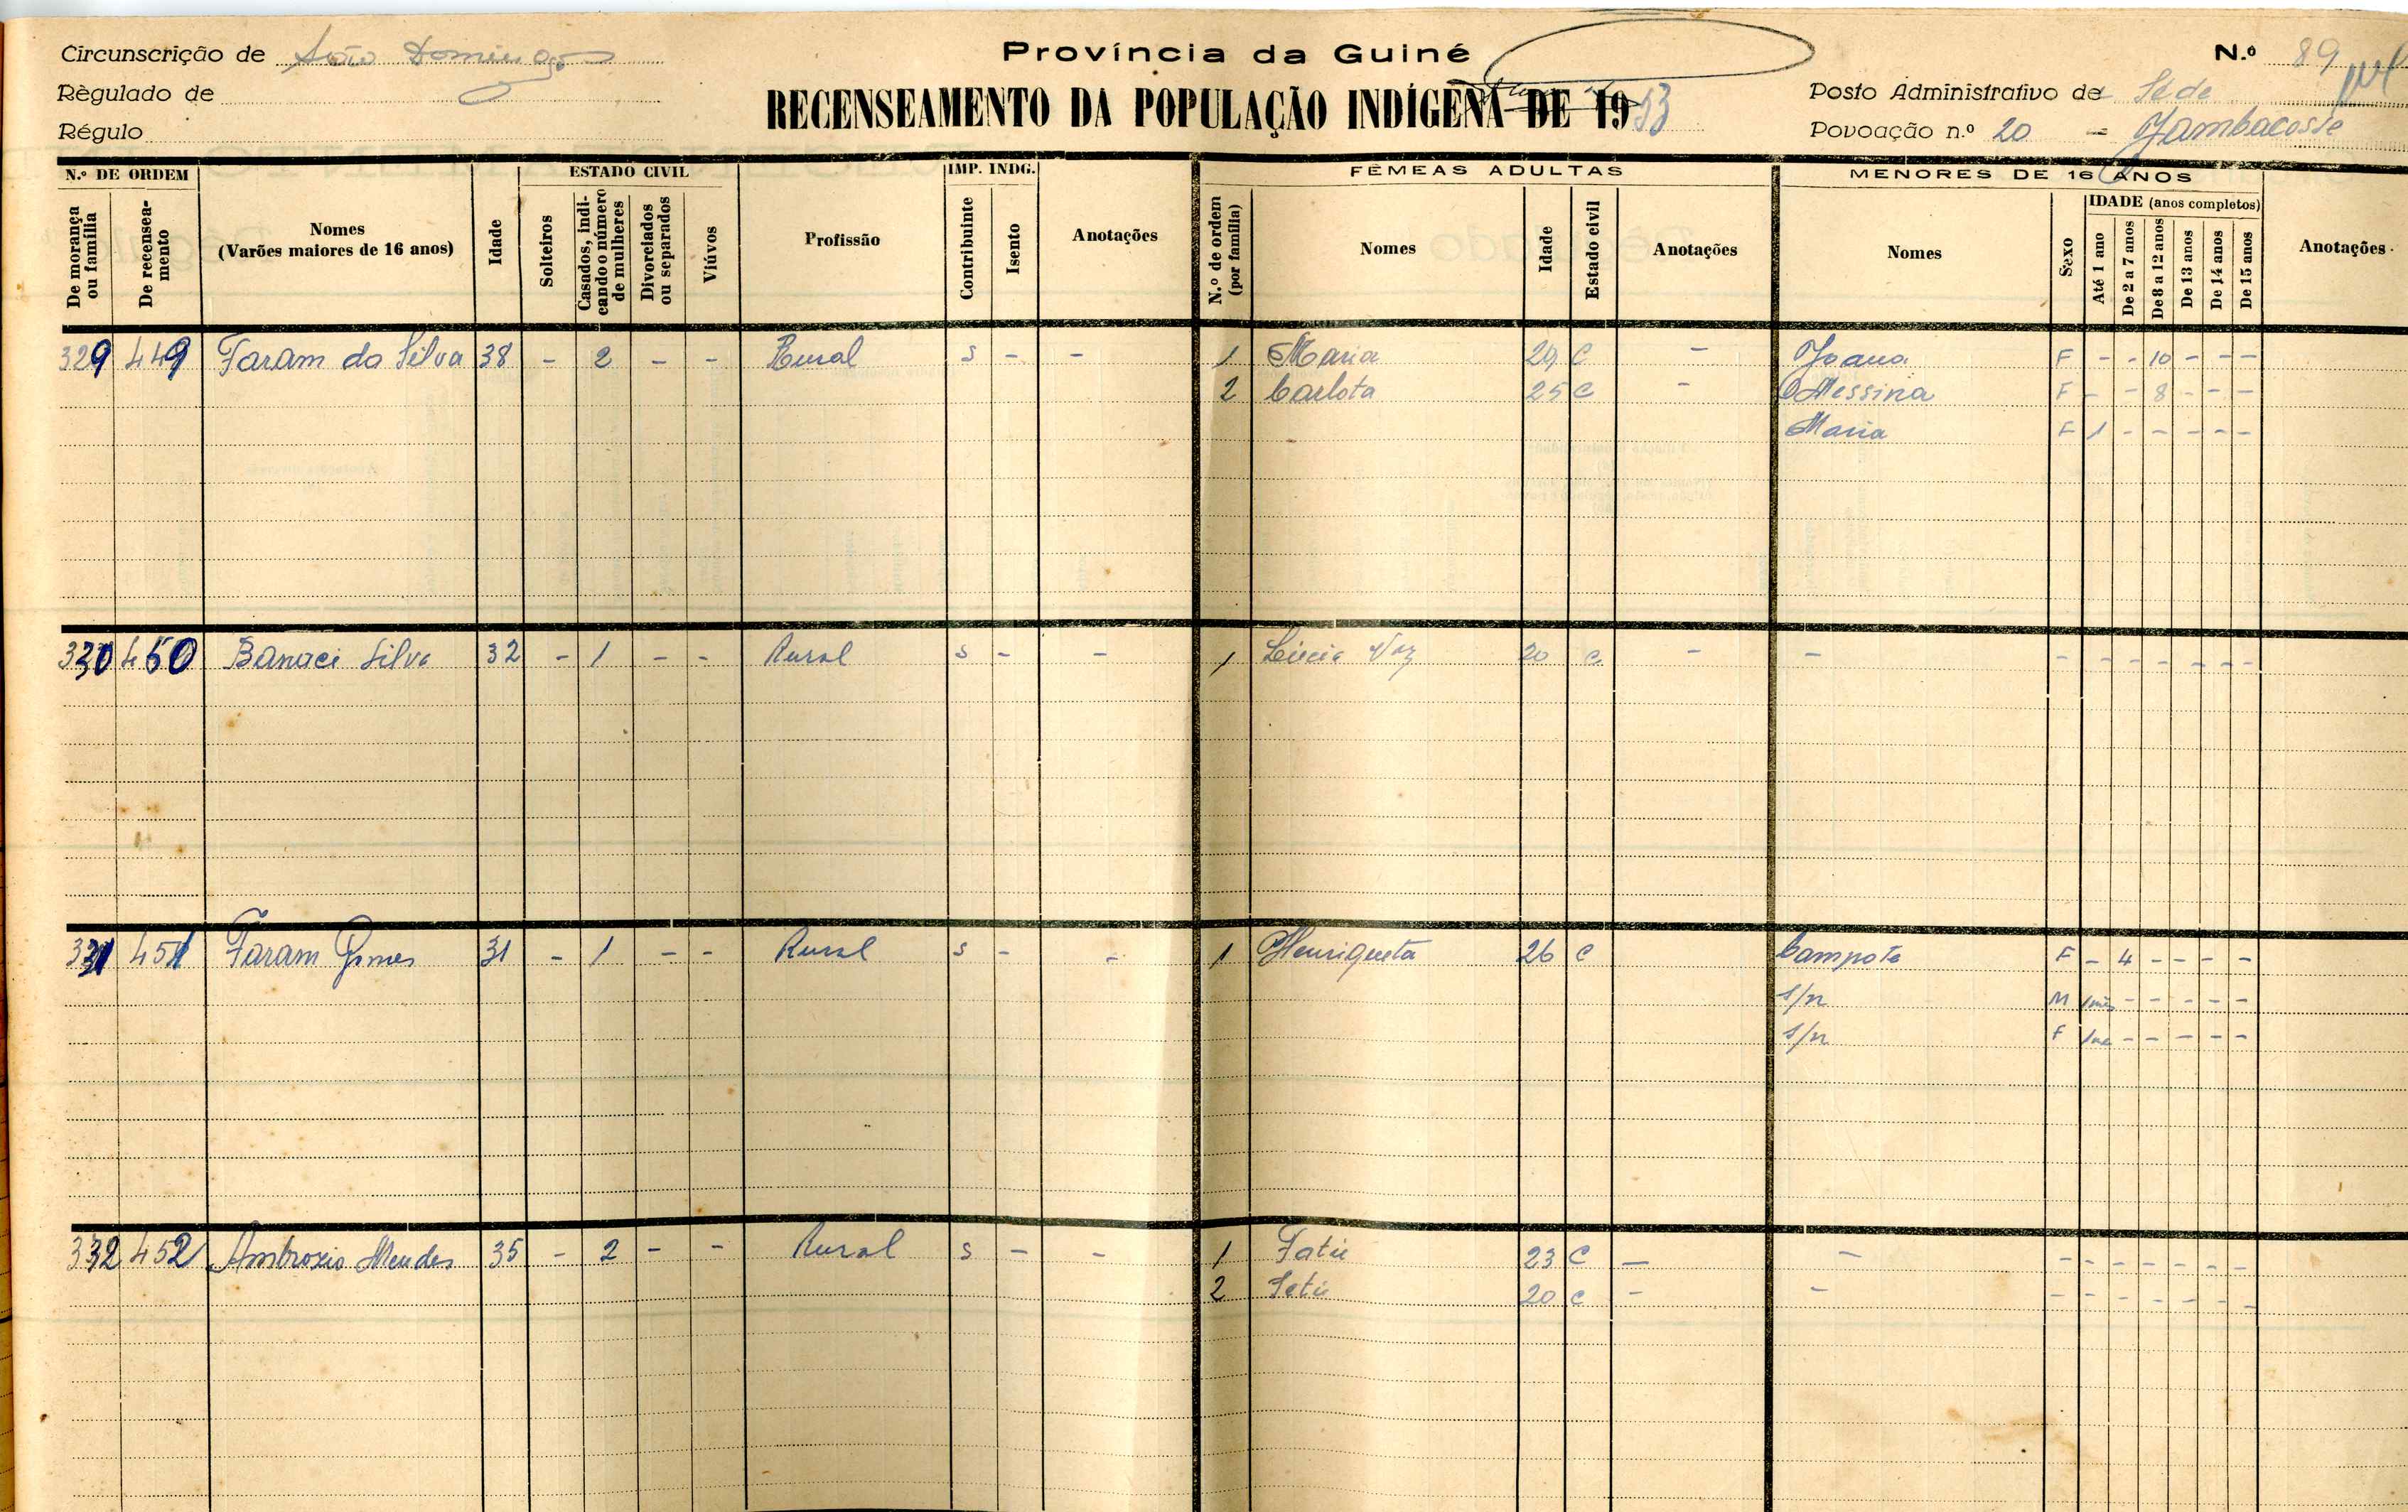 Circunscrição de São Domingos
Província da Guiné
N.º 89
Règulado de
RECENSEAMENTO DA POPULAÇÃO INDÍGENA DE 1953
Posto Administrativo de Sede
Régulo
Povoação n.º 20 = Jambacosse
N.º DE ORDEM
ESTADO CIVIL
IMP. INDG.
FÊMEAS ADULTAS
MENORES DE 16 ANOS
De morança ou família
De recenseamento
Nomes
(Varões maiores de 16 anos)
Idade
Solteiros
Casados, indicando o número de mulheres
Divorciados ou separados
Viúvos
Profissão
Contribuinte
Isento
Anotações
N.º de ordem (por família)
Nomes
Idade
Estado civil
Anotações
Nomes
Sexo
IDADE (anos completos)
Até 1 ano
De 2 a 7 anos
De 8 a 12 anos
De 13 anos
De 14 anos
De 15 anos
Anotações
329 449 Faram da Silva 38 - 2 - - Rural s - - 1 Maria 29 C - Joana F - - 10 - - -
2 Carlota 25 C - Messina F - - 8 - - -
Maria F 1 - - - - -
330 450 Banaci Silva 32 - 1 - - Rural s - - 1 Lúcia Vaz 20 c - - - - - - - - -
331 451 Faram Gomes 31 - 1 - - Rural s - - 1 Henriqueta 26 C Campota F - 4 - - - -
s/n M 1 mês - - - - -
s/n F - - - - -
332 452 Ambrozio Mendes 35 - 2 - - Rural s - - 1 Fatú 23 C - - - - - - - - -
2 Setú 20 C - - - - - - - - -